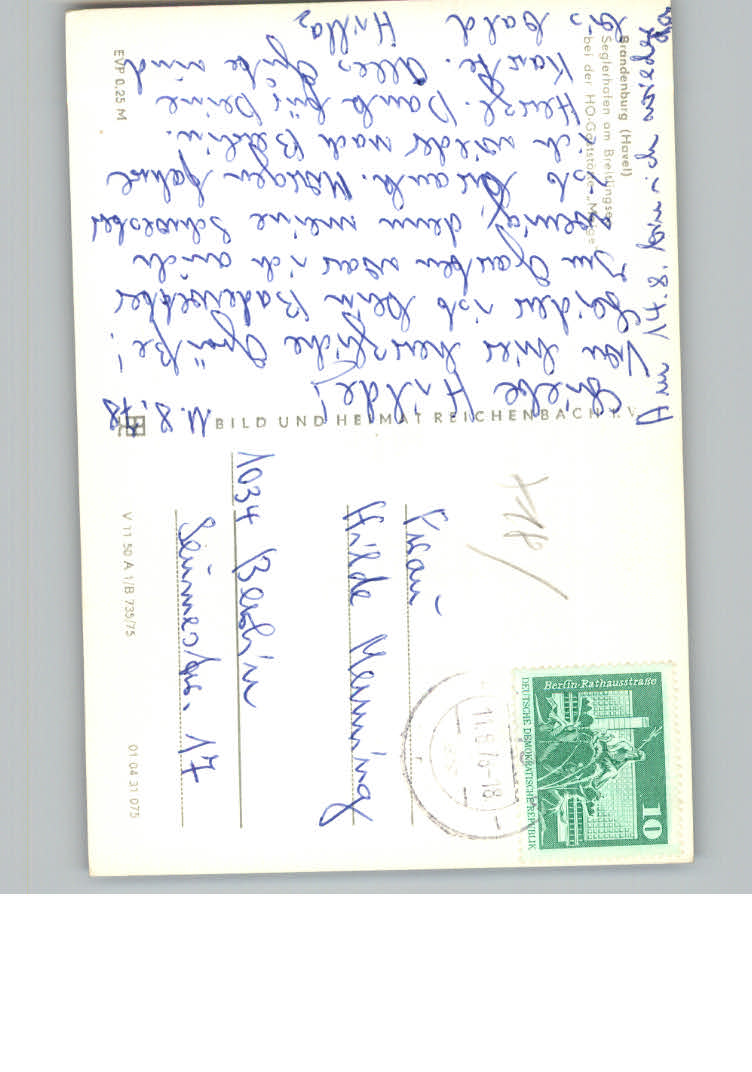 Brandenburg (Havel)
Seglerhafen am Breitlingsee
bei der HO-Gaststätte
EVP 0,25 M
11.8.78
Liebe Hilde!
Von hier herzliche Grüße!
Leider ist kein Badewetter
Im Garten war ich auch
wenig, denn meine Schwester
ist krank. Morgen fahre
ich wieder nach Berlin.
Herzl. Dank für Deine
Karte. Alles Gute und
bis bald
Hilla
Am 14.8. bin ich wieder da
BILD UND HEIMAT REICHENBACH I. V.
V 11 50 A 1/B 735/75
01 04 31 075
Frau
Hilde Henning
1034 Berlin
17
Berlin-Rathausstraße
DEUTSCHE DEMOKRATISCHE REPUBLIK
10